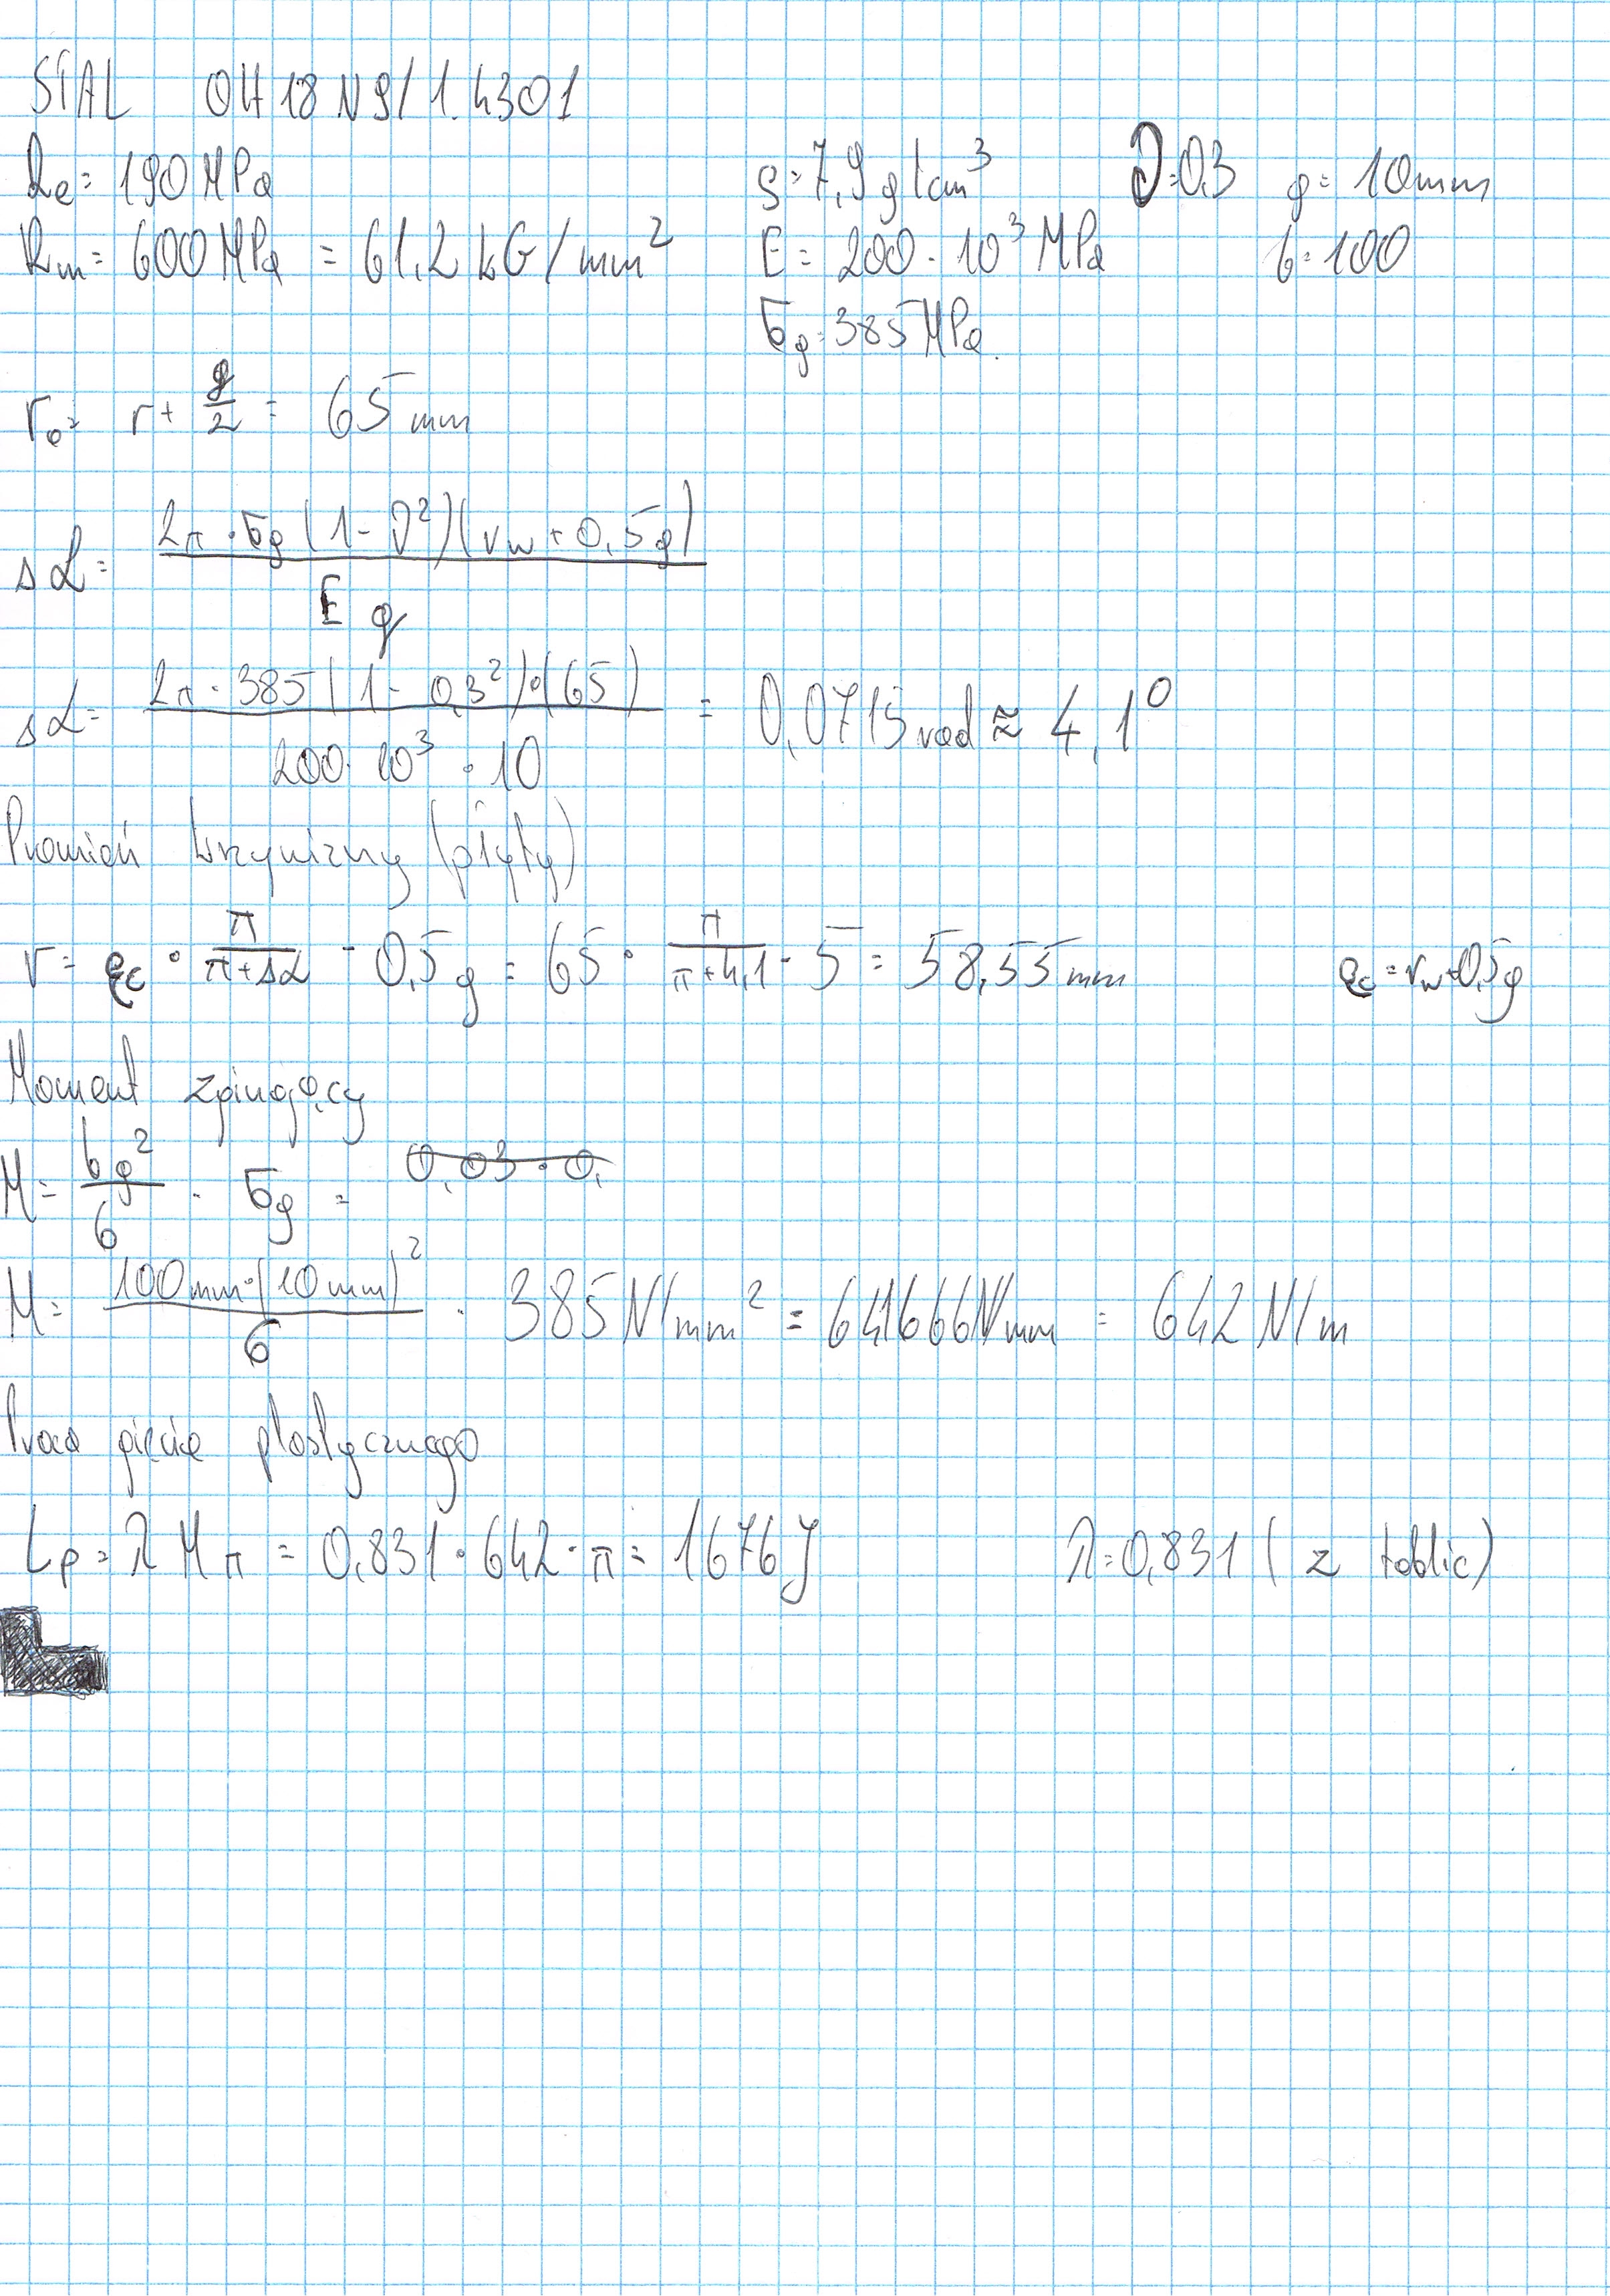 STAL OH18N9/1.4301
Re = 190 MPa ρ = 7,9 g/cm³ ν = 0,3 g = 10mm
Rm = 600 MPa = 61,2 kG/mm² E = 200 · 10³ MPa b = 100
σg = 385 MPa
r₀ = r + g/2 = 65 mm
Δα = 2π · σg (1 - ν²)(rw + 0,5g) / E g
Δα = 2π · 385 (1 - 0,3²) · (65) / 200 · 10³ · 10 = 0,0715 rad ≈ 4,1°
Promień krzywizny (płyty)
r = ρc · π/(π+Δα) - 0,5g = 65 · π/(π+4,1) - 5 = 58,55 mm ρc = rw + 0,5g
Moment zginający
M = bg²/6 · σg = 0,03 · 0,
M = 100mm · (10mm)²/6 · 385 N/mm² = 641666Nmm = 642 N/m
Praca gięcia plastycznego
Lp = λ M π = 0,831 · 642 · π = 1676 J λ = 0,831 (z tablic)